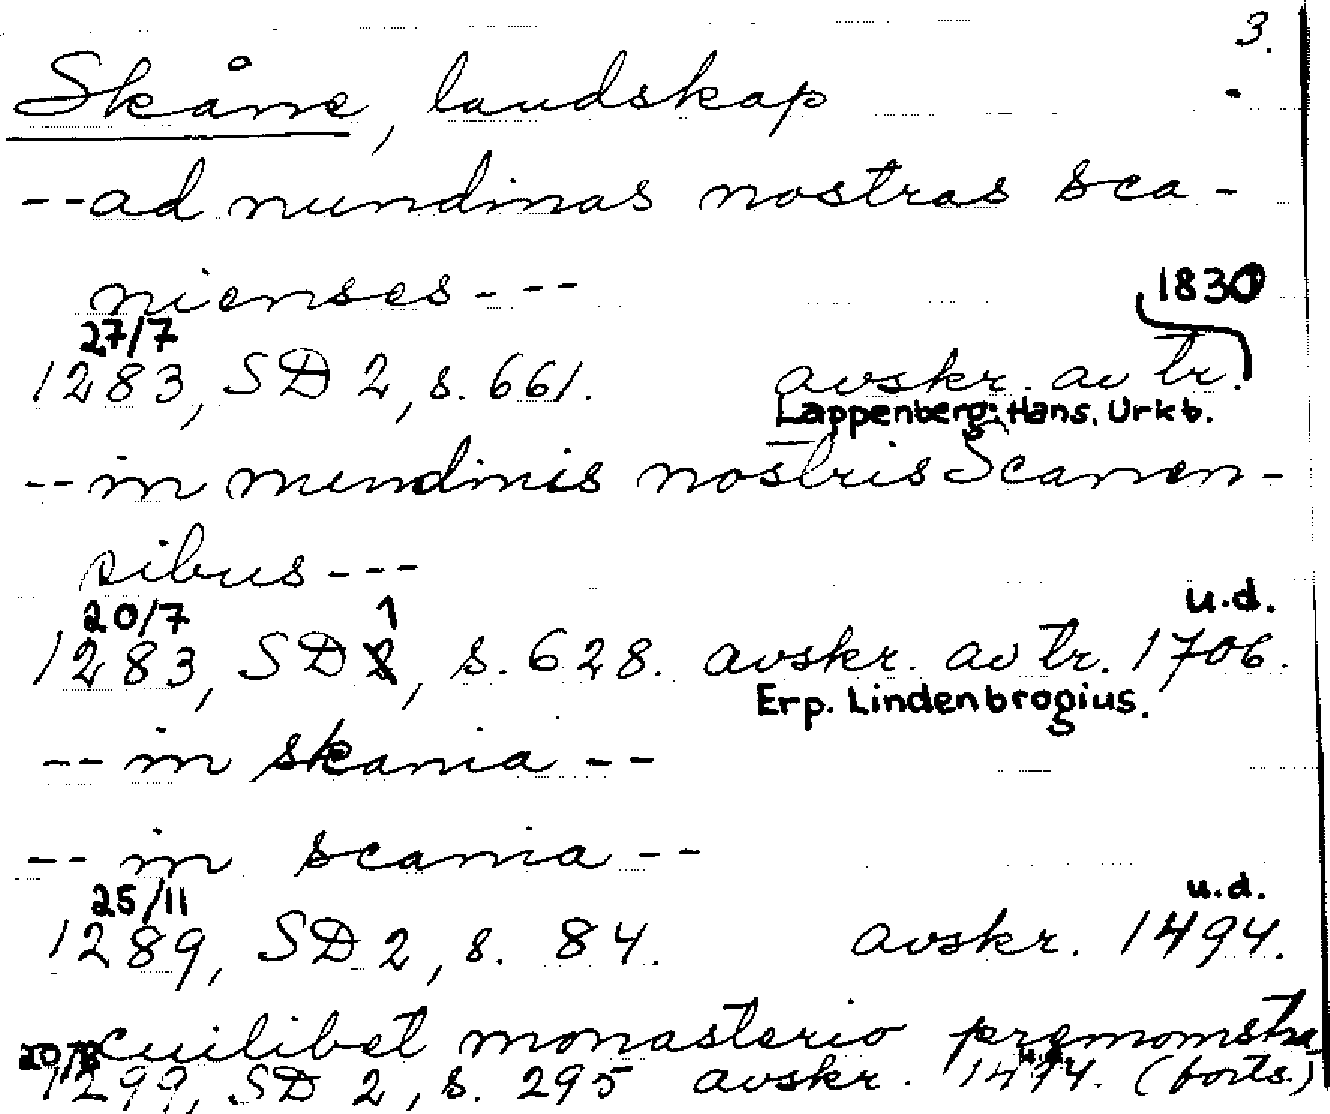 3.
Skåne, landskap
--ad nundinas nostras sca-
nienses---
1830
27/7
1283, SD 2, s. 661. avskr. av tr.
Lappenberg: Hans. Urkb.
--in nundinis nostris Scanen-
sibus---
20/7 1 u.d.
1283, SD 2, s. 628. avskr. av tr. 1706.
Erp. Lindenbrogius.
-- in skania --
-- in scania --
25/11 u.d.
1289, SD 2, s. 84. avskr. 1494.
cuilibet monasterio premonstra
u.d.
1299, SD 2, s. 295 avskr. 1494. (forts.)